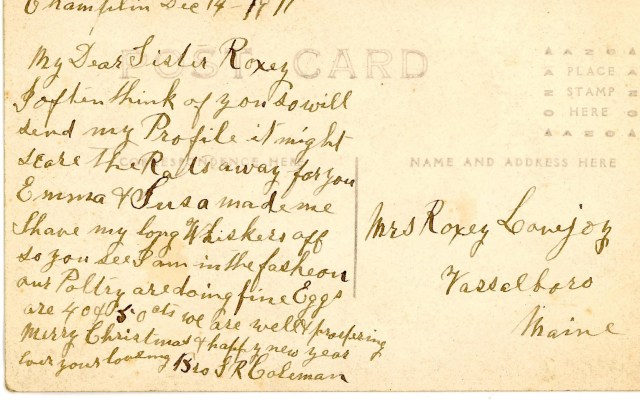 Champlin Dec 14 - 1911
My Dear Sister Roxey
POST CARD
I often think of you so will
send my Profile it might
scare the Rats away for you
CORRESPONDENCE HERE
Emma & Susa made me
Shave my long Whiskers off
so you see I am in the fasheon
our Poltry are doing fine Eggs
are 40 & 50 cts we are well & prospering
Merry Christmas & happy new year
love your loveing Bro S R Coleman
PLACE
STAMP
HERE
NAME AND ADDRESS HERE
Mrs Roxey Lovejoy
Vasselboro
Maine